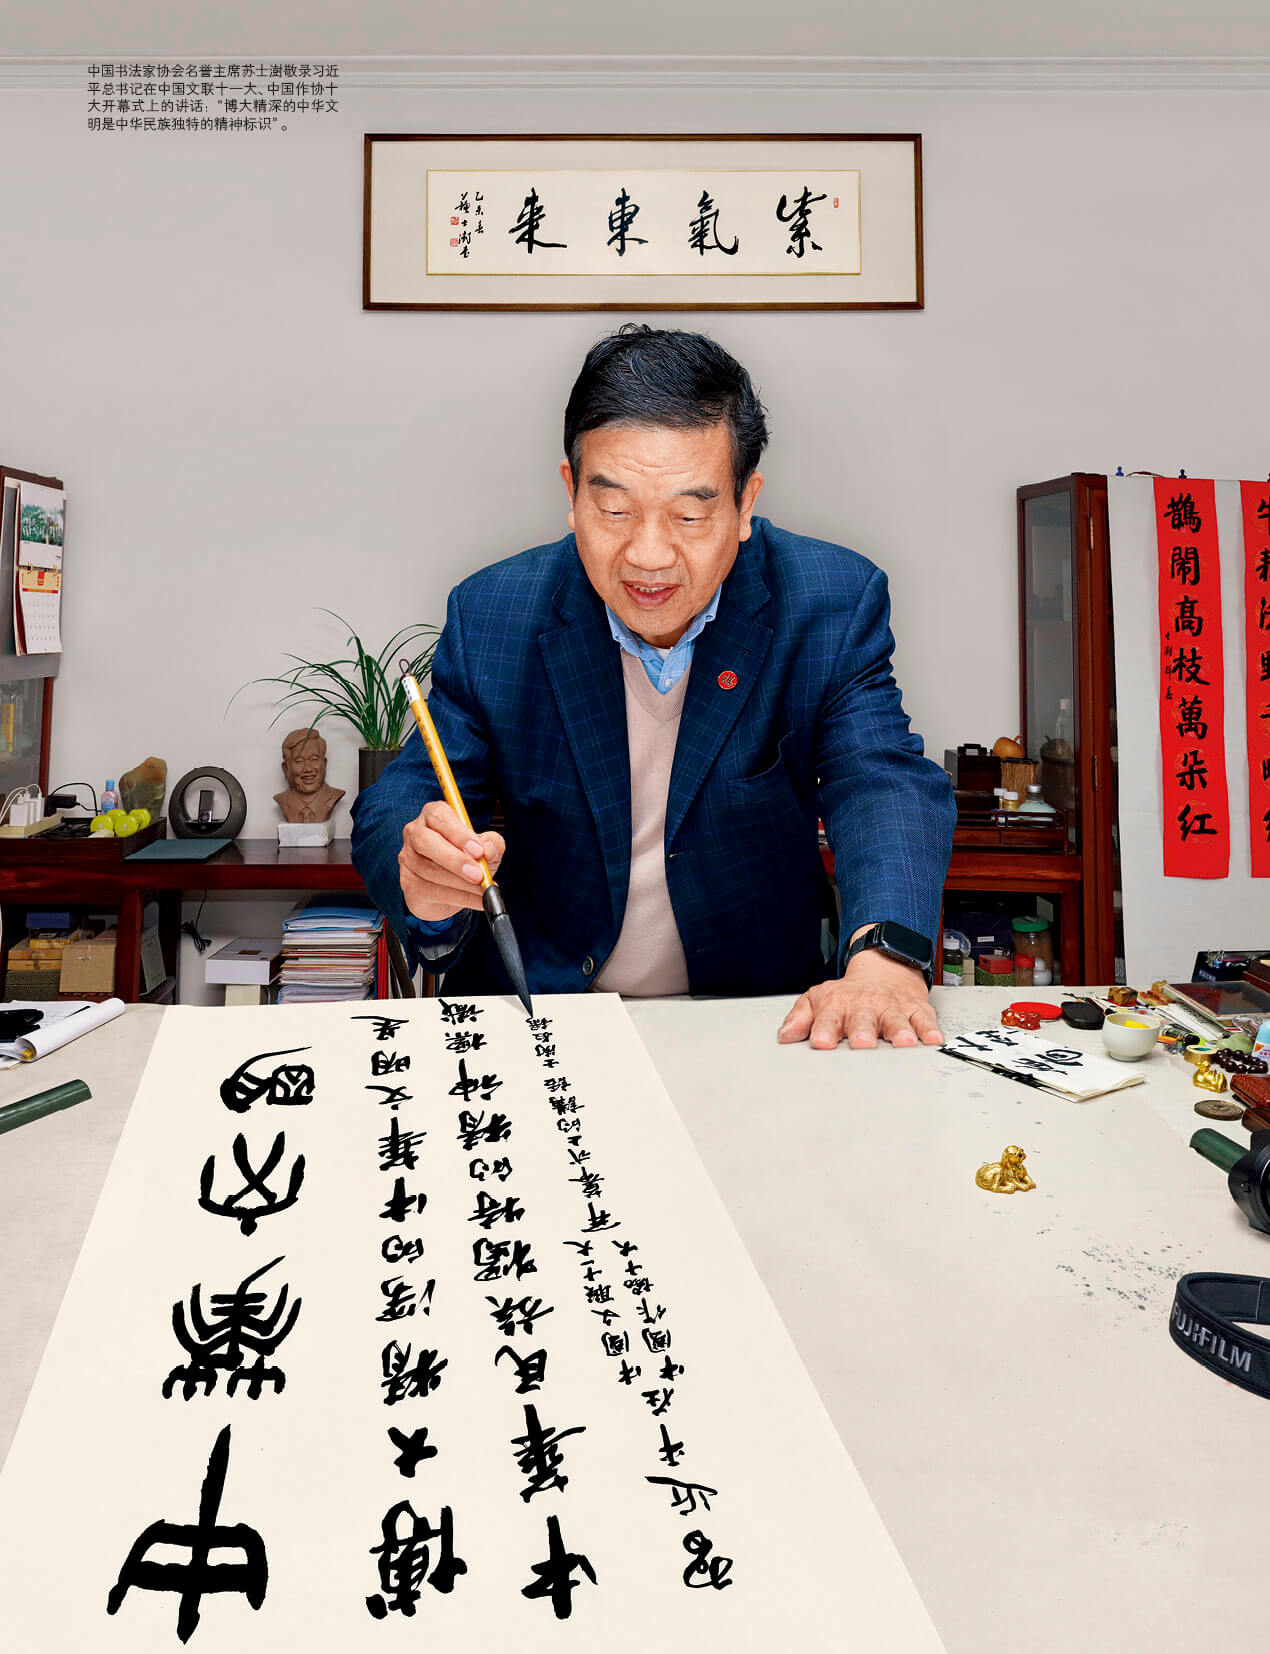 中国书法家协会名誉主席苏士澍敬录习近
平总书记在中国文联十一大、中国作协十
大开幕式上的讲话：“博大精深的中华文
明是中华民族独特的精神标识”。
紫氣東来
乙未春
蘇士澍書
鵲鬧高枝萬朵红
中華文明
博大精深的中華文明是
中華民族獨特的精神標識
習近平在中國文聯十一大
中國作協十大
開幕式上的講話 士澍敬錄
FUJIFILM